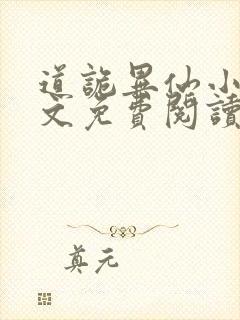 道詭異仙小
文免費閱讀
真元